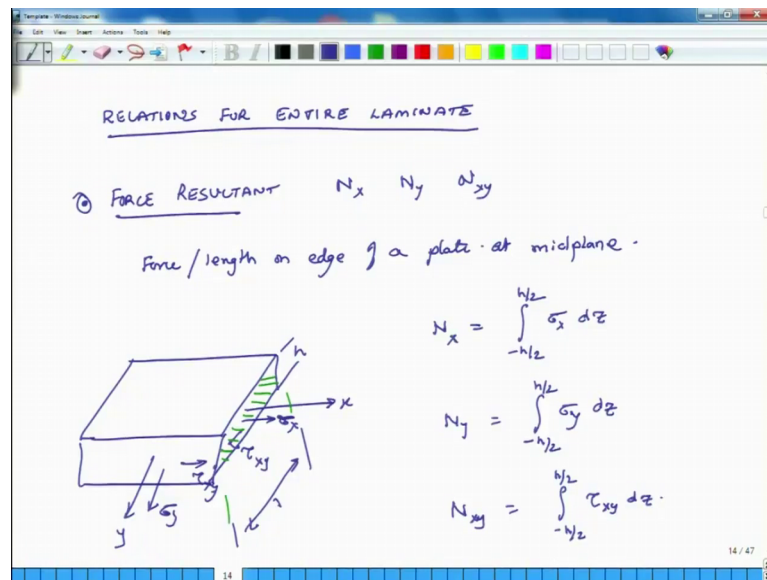 Template - Windows Journal
File Edit View Insert Actions Tools Help
B I
RELATIONS FOR ENTIRE LAMINATE
FORCE RESULTANT N_x N_y N_xy
Force / length on edge of a plate at midplane.
N_x = ∫_{-h/2}^{h/2} σ_x dz
N_y = ∫_{-h/2}^{h/2} σ_y dz
N_xy = ∫_{-h/2}^{h/2} τ_xy dz.
h
x
σ_x
τ_xy
τ_xy
σ_y
y
1
14 / 47
14